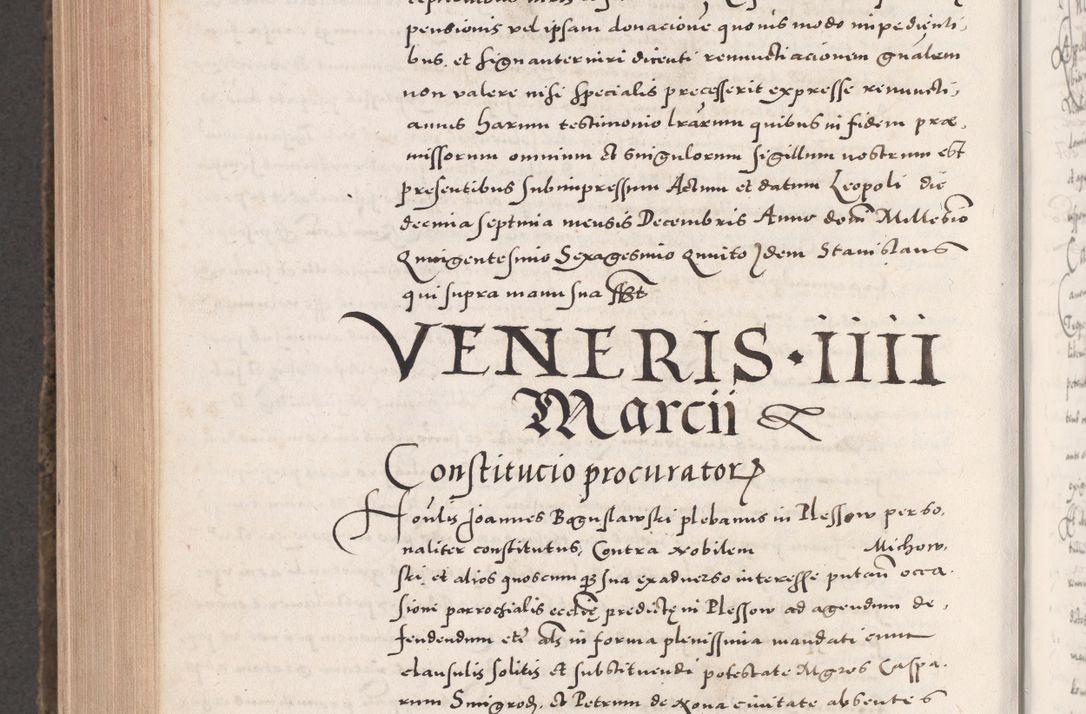 pensionis vel ipsam donacione quovis modo inpedienti,
bus, et signanter iuri dicenti renunctiacionem gnalem
non valere nisi specialis precesserit expresse renuncti,
amus harum testimonio lrarum quibus in fidem præ,
missorum omnium et singulorum sigillum nostrum est
presentibus subimpressum Actum et datum Leopoli die
decima septima mensis Decembris Anno domi Millesio
Quingentesimo Sexagesimo Quinto Idem Stanislaus
qui supra manu sua sst
VENERIS · iiii
Marcii &
Constitucio procurator
Honlis Joannes Boguslawski plebanus in Plessow perso,
naliter constitutus, Contra Nobilem Michow,
ski, et alios quoscumqz sua exadverso interesse putan occa,
sione parrochialis ecclię predictę in Plessow ad agendum de,
fendendum etc als in forma plenissima mandati cum
clausulis solitis et substituendi potestate Mgros Caspa,
rum Smigrod, et Petrum de Nova civitate absentes